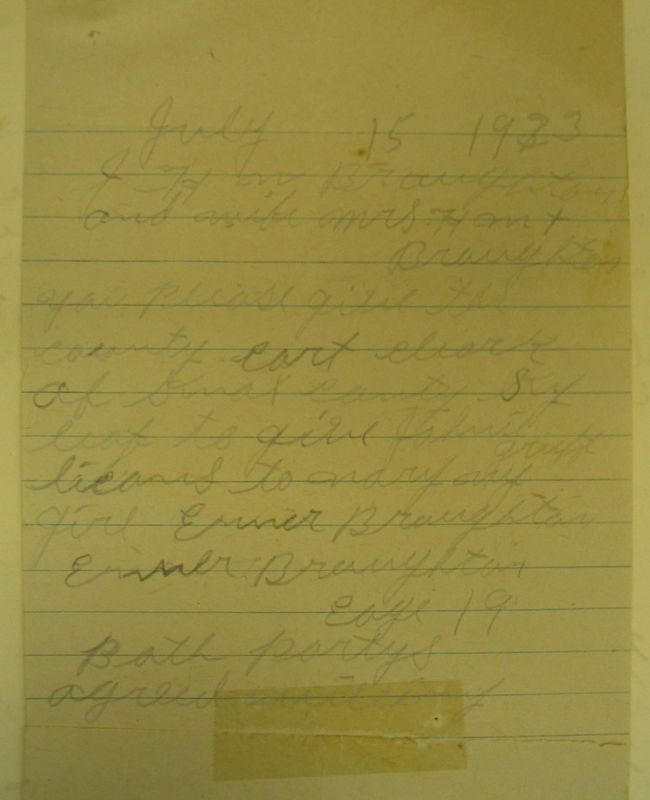 July 15 1923
J H m Braughton
and wife mrs H m t
Braughton
you please give the
county cort cleark
of Knox county Ky
leaf to give Johnie
gruff
liceans to mary my
girl Emmer Braughton
Emmer Braughton
eage 19
Both partys
agreed